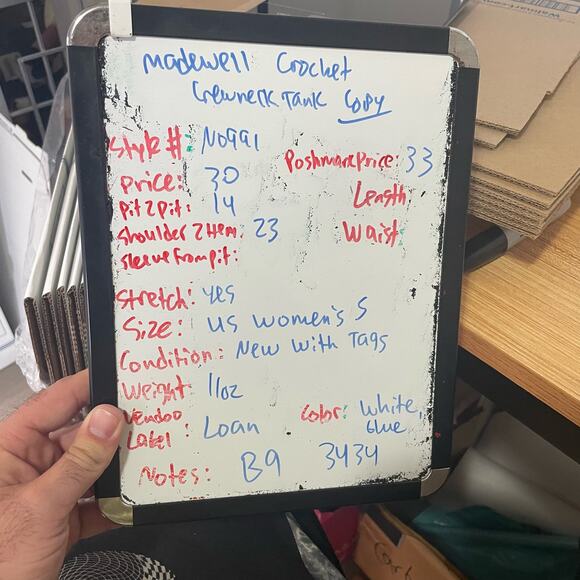 Madewell Crochet
Crewneck Tank Copy
Style #: NO991
Poshmark Price: 33
Price: 30
Length:
Pit 2 Pit: 14
Waist:
Shoulder 2 Hem: 23
Sleeve From pit:
Stretch: yes
Size: US Women's S
Condition: New With Tags
Weight: 11oz
Vendoo
Label: Loan
Color: White,
blue
Notes: B9 3434